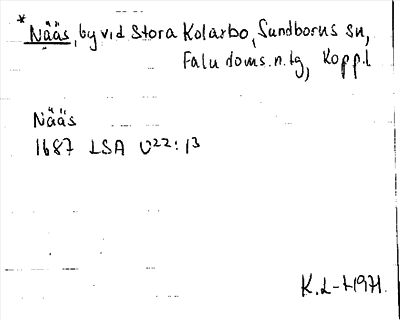 * Nääs, by vid Stora Kolarbo, Sundborns sn,
Falu doms.n.lg, Kopp.l
Nääs
1687 LSA U22:13
K.L-t 1971.